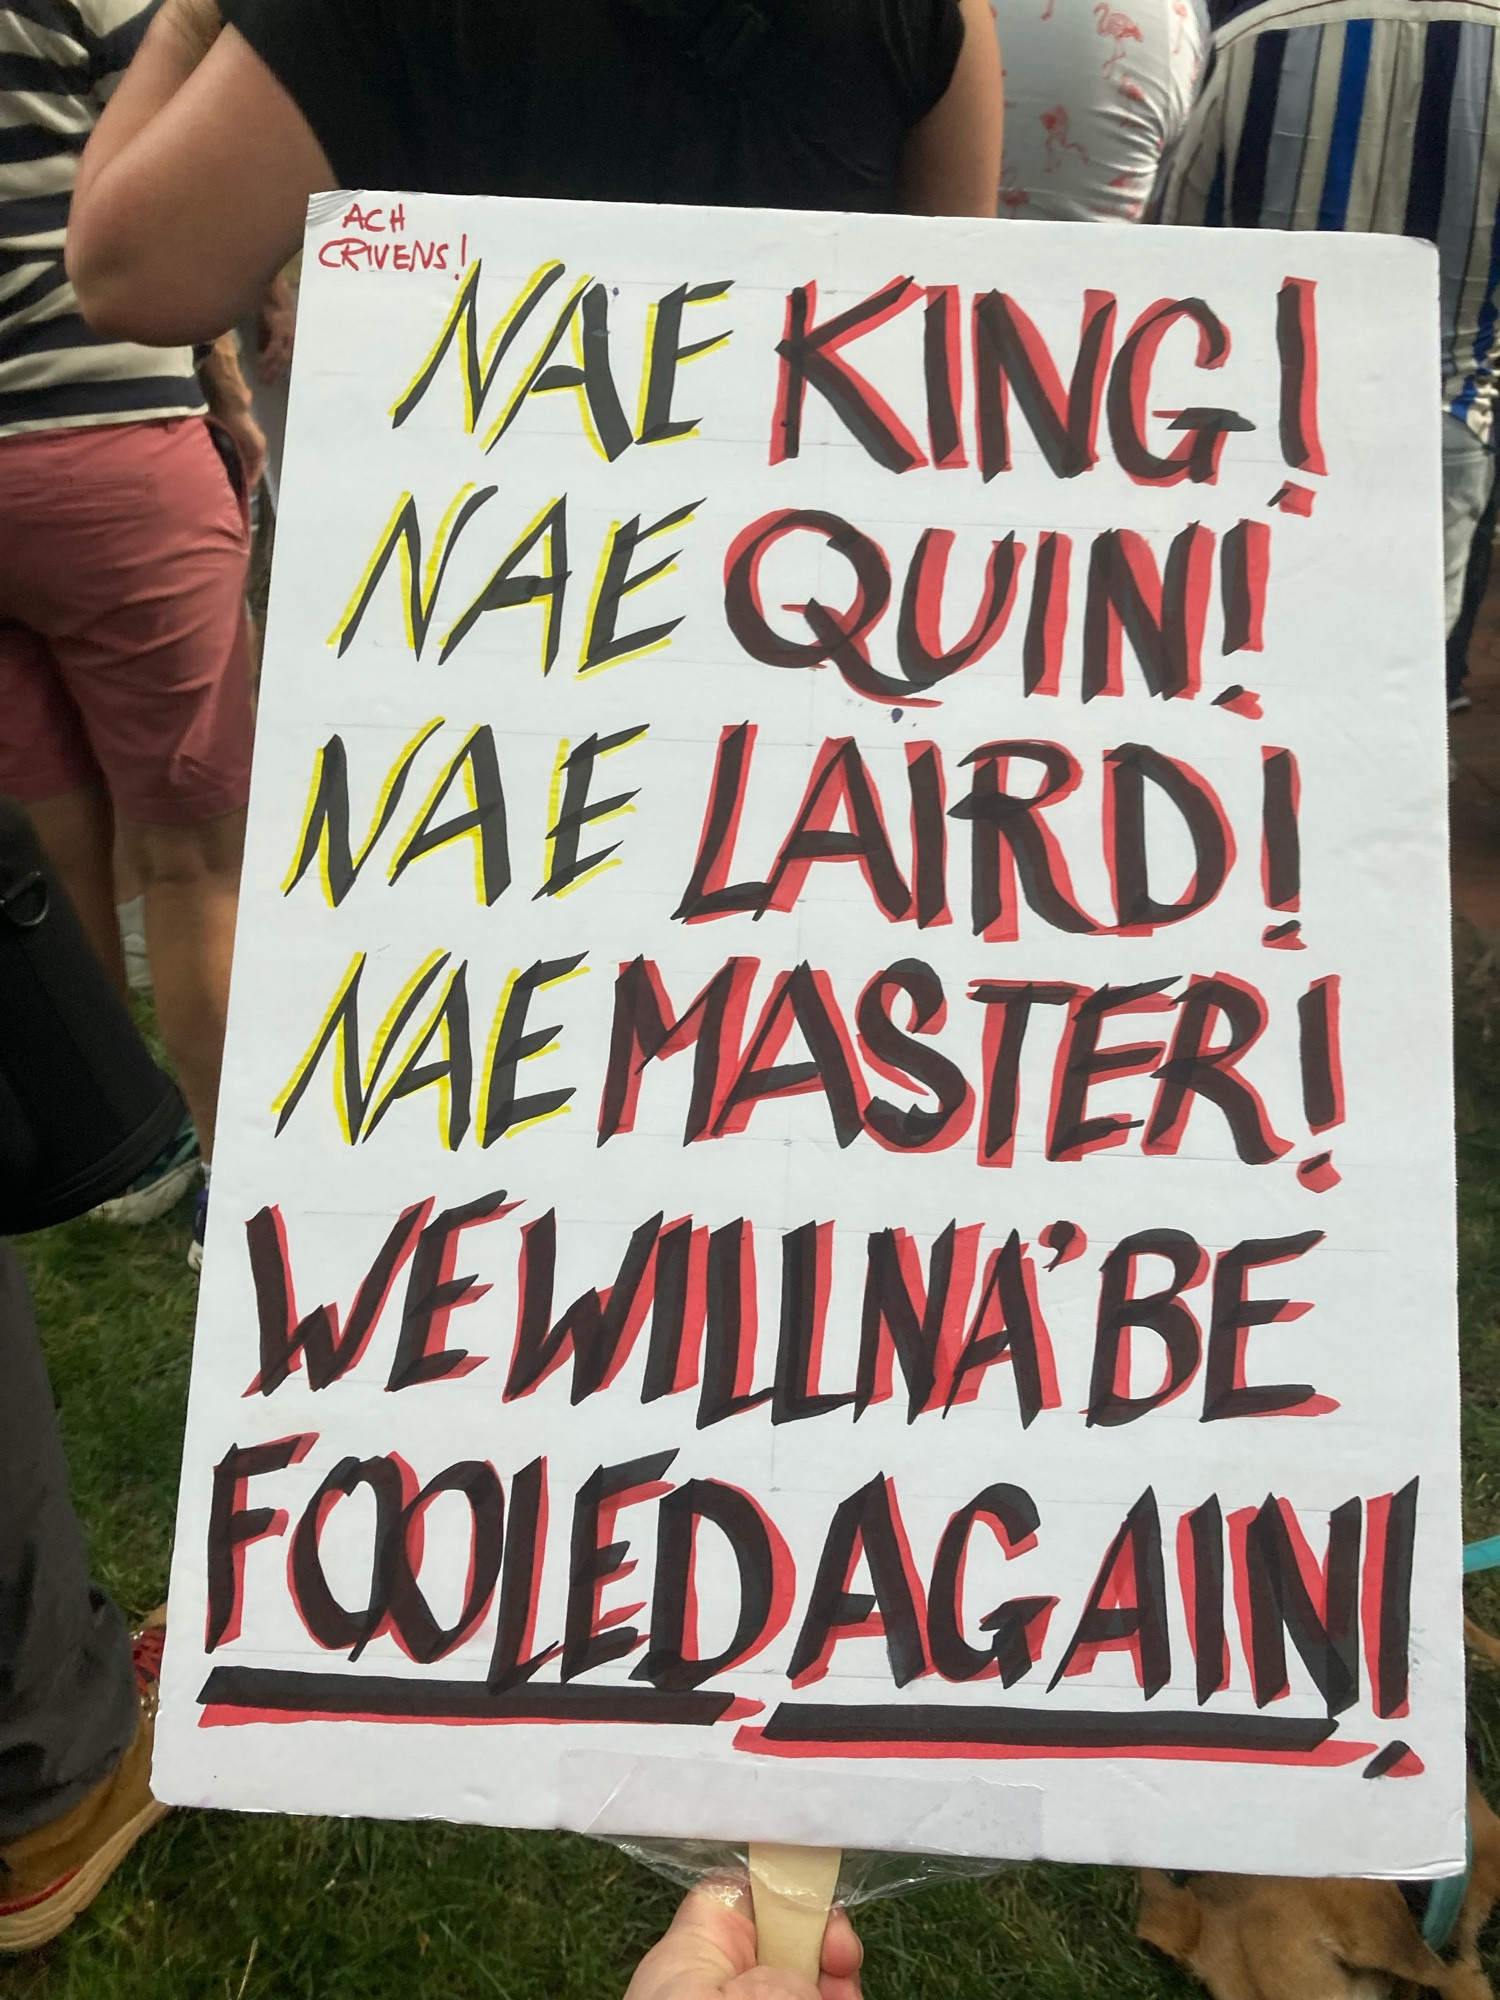 ACH
CRIVENS!
NAE KING!
NAE QUIN!
NAE LAIRD!
NAE MASTER!
WE WILLNA' BE
FOOLED AGAIN!